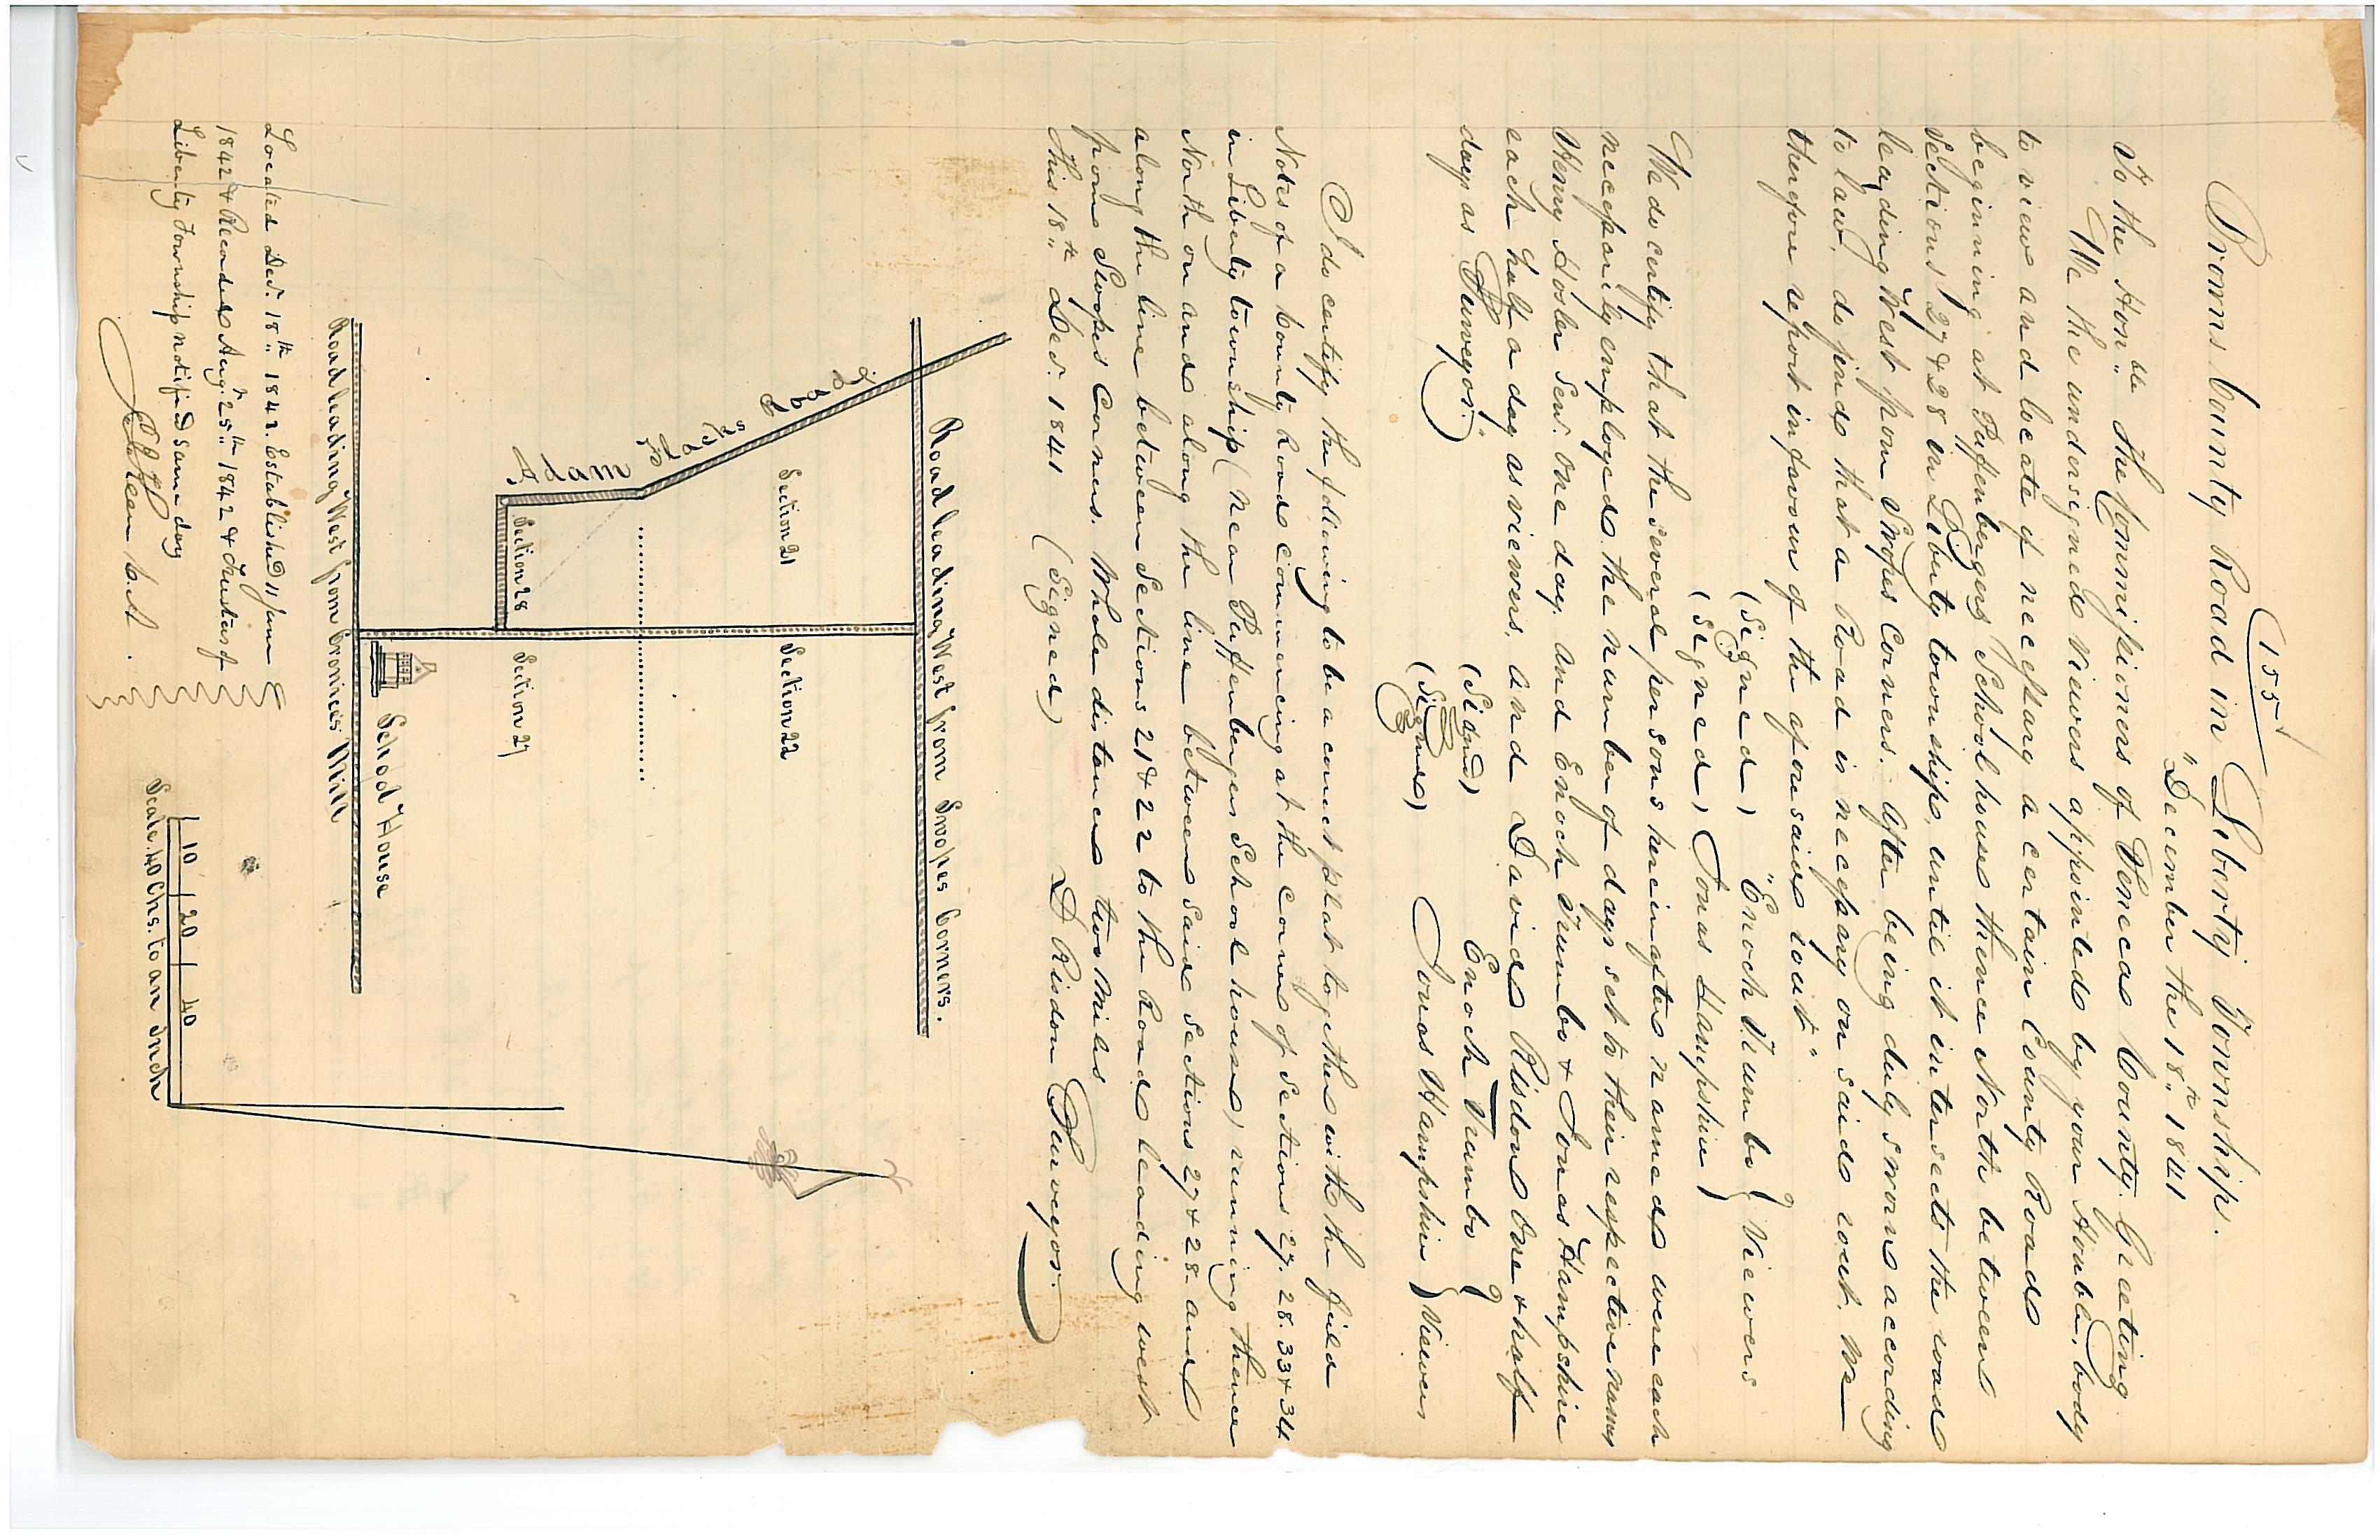 155
Browns County Road in Liberty Township.
"December the 18th 1841
To the Honble the Commissioners of Seneca County. Greeting
We the undersigned viewers appointed by your Honble. body
to view and locate if necessary a certain County Road
beginning at Puffenbergers School house thence North between
Sections 27 & 28 in Liberty township, until it intersects the road
leading West from Swopes Corners. After being duly sworn according
to law, do find that a Road is necessary on said rout. We
therefore report in favour of the aforesaid rout"
(Signed) "Enoch Trumbo } Viewers
(Signed) Jonas Hampshire }
We do certify that the several persons hereinafter named were each
necessarily employed the number of days set to their respective names
Henry Hosler Senr. One day, and Enoch Trumbo & Jonas Hampshire
each half a day as viewers, and David Risdon One & half
days as Surveyor."
(Signed) Enoch Trumbo }
(Signed) Jonas Hampshire } Viewers
I do certify the following to be a correct plat together with the field
Notes of a County Road commencing at the corner of Sections 27. 28. 33 & 34
in Liberty township (near Puffenbergers School house) running thence
North on and along the line between said Sections 27 & 28. and
along the line between Sections 21 & 22 to the Road leading west
from Swopes Corners. Whole distance two miles
this 18th Dec. 1841 (Signed) D Risdon Surveyor.
Road leading West from Swopes Corners.
Adam Blacks Road
Section 21
Section 22
Section 28
Section 27
School House
Road leading West from Cronices Mill
10 20 40
Scale. 40 Chs. to an Inch
Located Dec. 18th 1842. Established 11 June
1842 & Recorded Aug. 25th 1842 & Trustees of
Liberty Township notified same day